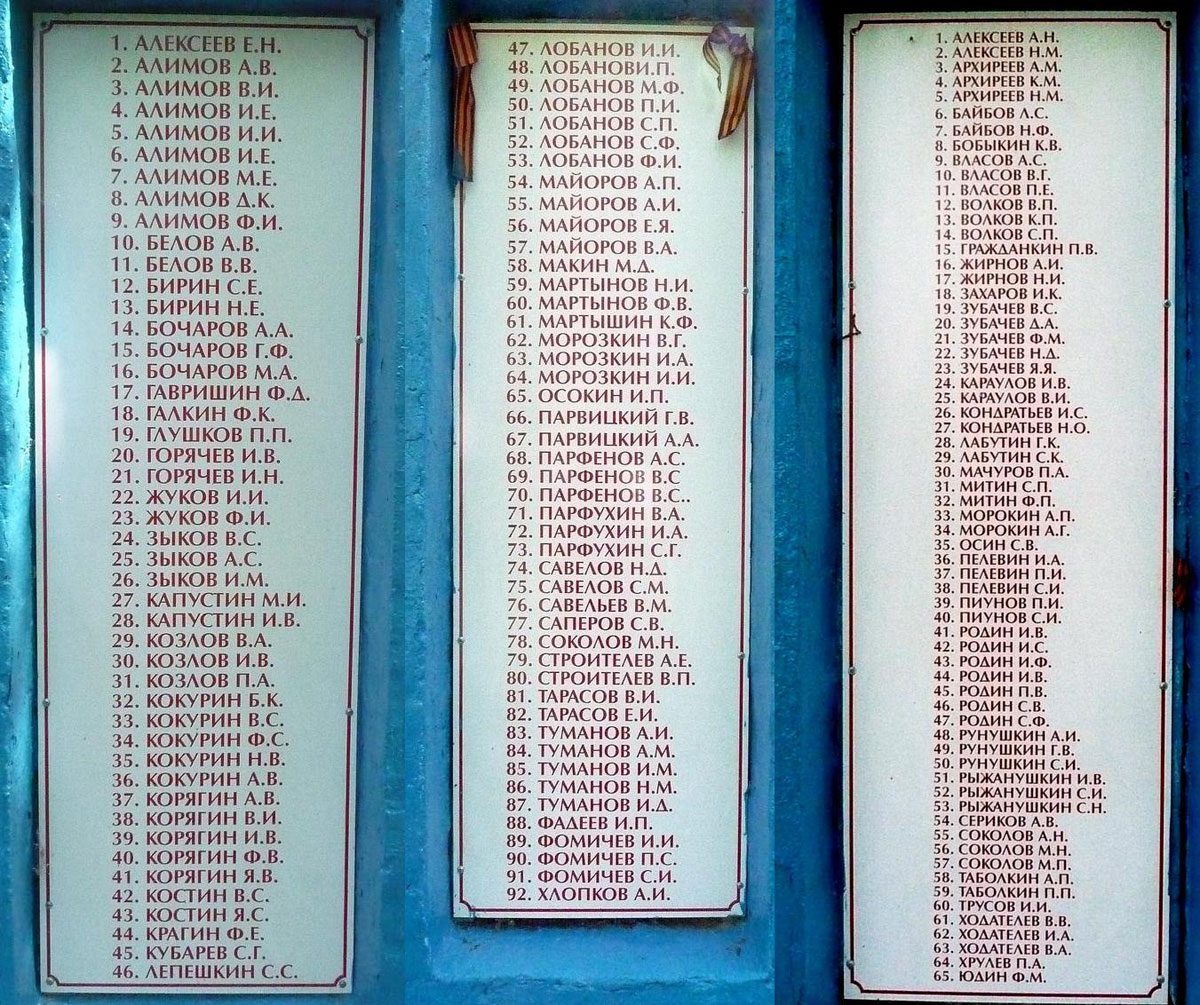 1. АЛЕКСЕЕВ Е.Н.
2. АЛИМОВ А.В.
3. АЛИМОВ В.И.
4. АЛИМОВ И.Е.
5. АЛИМОВ И.И.
6. АЛИМОВ И.Е.
7. АЛИМОВ М.Е.
8. АЛИМОВ Д.К.
9. АЛИМОВ Ф.И.
10. БЕЛОВ А.В.
11. БЕЛОВ В.В.
12. БИРИН С.Е.
13. БИРИН Н.Е.
14. БОЧАРОВ А.А.
15. БОЧАРОВ Г.Ф.
16. БОЧАРОВ М.А.
17. ГАВРИШИН Ф.Д.
18. ГАЛКИН Ф.К.
19. ГЛУШКОВ П.П.
20. ГОРЯЧЕВ И.В.
21. ГОРЯЧЕВ И.Н.
22. ЖУКОВ И.И.
23. ЖУКОВ Ф.И.
24. ЗЫКОВ В.С.
25. ЗЫКОВ А.С.
26. ЗЫКОВ И.М.
27. КАПУСТИН М.И.
28. КАПУСТИН И.В.
29. КОЗЛОВ В.А.
30. КОЗЛОВ И.В.
31. КОЗЛОВ П.А.
32. КОКУРИН Б.К.
33. КОКУРИН В.С.
34. КОКУРИН Ф.С.
35. КОКУРИН Н.В.
36. КОКУРИН А.В.
37. КОРЯГИН А.В.
38. КОРЯГИН В.И.
39. КОРЯГИН И.В.
40. КОРЯГИН Ф.В.
41. КОРЯГИН Я.В.
42. КОСТИН В.С.
43. КОСТИН Я.С.
44. КРАГИН Ф.Е.
45. КУБАРЕВ С.Г.
46. ЛЕПЕШКИН С.С.
47. ЛОБАНОВ И.И.
48. ЛОБАНОВИ.П.
49. ЛОБАНОВ М.Ф.
50. ЛОБАНОВ П.И.
51. ЛОБАНОВ С.П.
52. ЛОБАНОВ С.Ф.
53. ЛОБАНОВ Ф.И.
54. МАЙОРОВ А.П.
55. МАЙОРОВ А.И.
56. МАЙОРОВ Е.Я.
57. МАЙОРОВ В.А.
58. МАКИН М.Д.
59. МАРТЫНОВ Н.И.
60. МАРТЫНОВ Ф.В.
61. МАРТЫШИН К.Ф.
62. МОРОЗКИН В.Г.
63. МОРОЗКИН И.А.
64. МОРОЗКИН И.И.
65. ОСОКИН И.П.
66. ПАРВИЦКИЙ Г.В.
67. ПАРВИЦКИЙ А.А.
68. ПАРФЕНОВ А.С.
69. ПАРФЕНОВ В.С
70. ПАРФЕНОВ В.С..
71. ПАРФУХИН В.А.
72. ПАРФУХИН И.А.
73. ПАРФУХИН С.Г.
74. САВЕЛОВ Н.Д.
75. САВЕЛОВ С.М.
76. САВЕЛЬЕВ В.М.
77. САПЕРОВ С.В.
78. СОКОЛОВ М.Н.
79. СТРОИТЕЛЕВ А.Е.
80. СТРОИТЕЛЕВ В.П.
81. ТАРАСОВ В.И.
82. ТАРАСОВ Е.И.
83. ТУМАНОВ А.И.
84. ТУМАНОВ А.М.
85. ТУМАНОВ И.М.
86. ТУМАНОВ Н.М.
87. ТУМАНОВ И.Д.
88. ФАДЕЕВ И.П.
89. ФОМИЧЕВ И.И.
90. ФОМИЧЕВ П.С.
91. ФОМИЧЕВ С.И.
92. ХЛОПКОВ А.И.
1. АЛЕКСЕЕВ А.Н.
2. АЛЕКСЕЕВ Н.М.
3. АРХИРЕЕВ А.М.
4. АРХИРЕЕВ К.М.
5. АРХИРЕЕВ Н.М.
6. БАЙБОВ Л.С.
7. БАЙБОВ Н.Ф.
8. БОБЫКИН К.В.
9. ВЛАСОВ А.С.
10. ВЛАСОВ В.Г.
11. ВЛАСОВ П.Е.
12. ВОЛКОВ В.П.
13. ВОЛКОВ К.П.
14. ВОЛКОВ С.П.
15. ГРАЖДАНКИН П.В.
16. ЖИРНОВ А.И.
17. ЖИРНОВ Н.И.
18. ЗАХАРОВ И.К.
19. ЗУБАЧЕВ В.С.
20. ЗУБАЧЕВ Д.А.
21. ЗУБАЧЕВ Ф.М.
22. ЗУБАЧЕВ Н.Д.
23. ЗУБАЧЕВ Я.Я.
24. КАРАУЛОВ И.В.
25. КАРАУЛОВ В.И.
26. КОНДРАТЬЕВ И.С.
27. КОНДРАТЬЕВ Н.О.
28. ЛАБУТИН Г.К.
29. ЛАБУТИН С.К.
30. МАЧУРОВ П.А.
31. МИТИН С.П.
32. МИТИН Ф.П.
33. МОРОКИН А.П.
34. МОРОКИН А.Г.
35. ОСИН С.В.
36. ПЕЛЕВИН И.А.
37. ПЕЛЕВИН П.И.
38. ПЕЛЕВИН С.И.
39. ПИУНОВ П.И.
40. ПИУНОВ С.И.
41. РОДИН И.В.
42. РОДИН И.С.
43. РОДИН И.Ф.
44. РОДИН И.В.
45. РОДИН П.В.
46. РОДИН С.В.
47. РОДИН С.Ф.
48. РУНУШКИН А.И.
49. РУНУШКИН Г.В.
50. РУНУШКИН С.И.
51. РЫЖАНУШКИН И.В.
52. РЫЖАНУШКИН С.И.
53. РЫЖАНУШКИН С.Н.
54. СЕРИКОВ А.В.
55. СОКОЛОВ А.Н.
56. СОКОЛОВ М.Н.
57. СОКОЛОВ М.П.
58. ТАБОЛКИН А.П.
59. ТАБОЛКИН П.П.
60. ТРУСОВ И.И.
61. ХОДАТЕЛЕВ В.В.
62. ХОДАТЕЛЕВ И.А.
63. ХОДАТЕЛЕВ В.А.
64. ХРУЛЕВ П.А.
65. ЮДИН Ф.М.